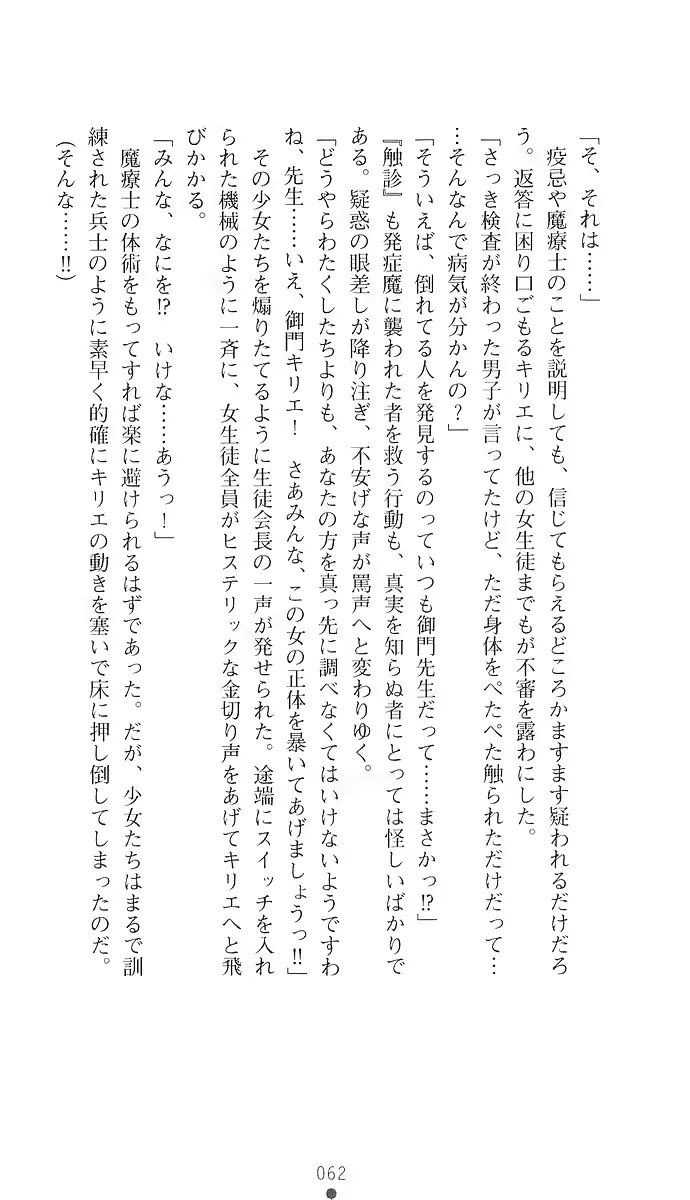 「そ、それは……」
　疫忌や魔療士のことを説明しても、信じてもらえるどころかますます疑われるだけだろ
う。返答に困り口ごもるキリエに、他の女生徒までもが不審を露わにした。
「さっき検査が終わった男子が言ってたけど、ただ身体をぺたぺた触られただけだって…
…そんなんで病気が分かんの？」
「そういえば、倒れてる人を発見するのっていつも御門先生だって……まさかっ⁉」
『触診』も発症魔に襲われた者を救う行動も、真実を知らぬ者にとっては怪しいばかりで
ある。疑惑の眼差しが降り注ぎ、不安げな声が罵声へと変わりゆく。
「どうやらわたくしたちよりも、あなたの方を真っ先に調べなくてはいけないようですわ
ね、先生……いえ、御門キリエ！　さあみんな、この女の正体を暴いてあげましょうっ‼」
　その少女たちを煽りたてるように生徒会長の一声が発せられた。途端にスイッチを入れ
られた機械のように一斉に、女生徒全員がヒステリックな金切り声をあげてキリエへと飛
びかかる。
「みんな、なにを⁉　いけな……あうっ！」
　魔療士の体術をもってすれば楽に避けられるはずであった。だが、少女たちはまるで訓
練された兵士のように素早く的確にキリエの動きを塞いで床に押し倒してしまったのだ。
(そんな……‼)
062